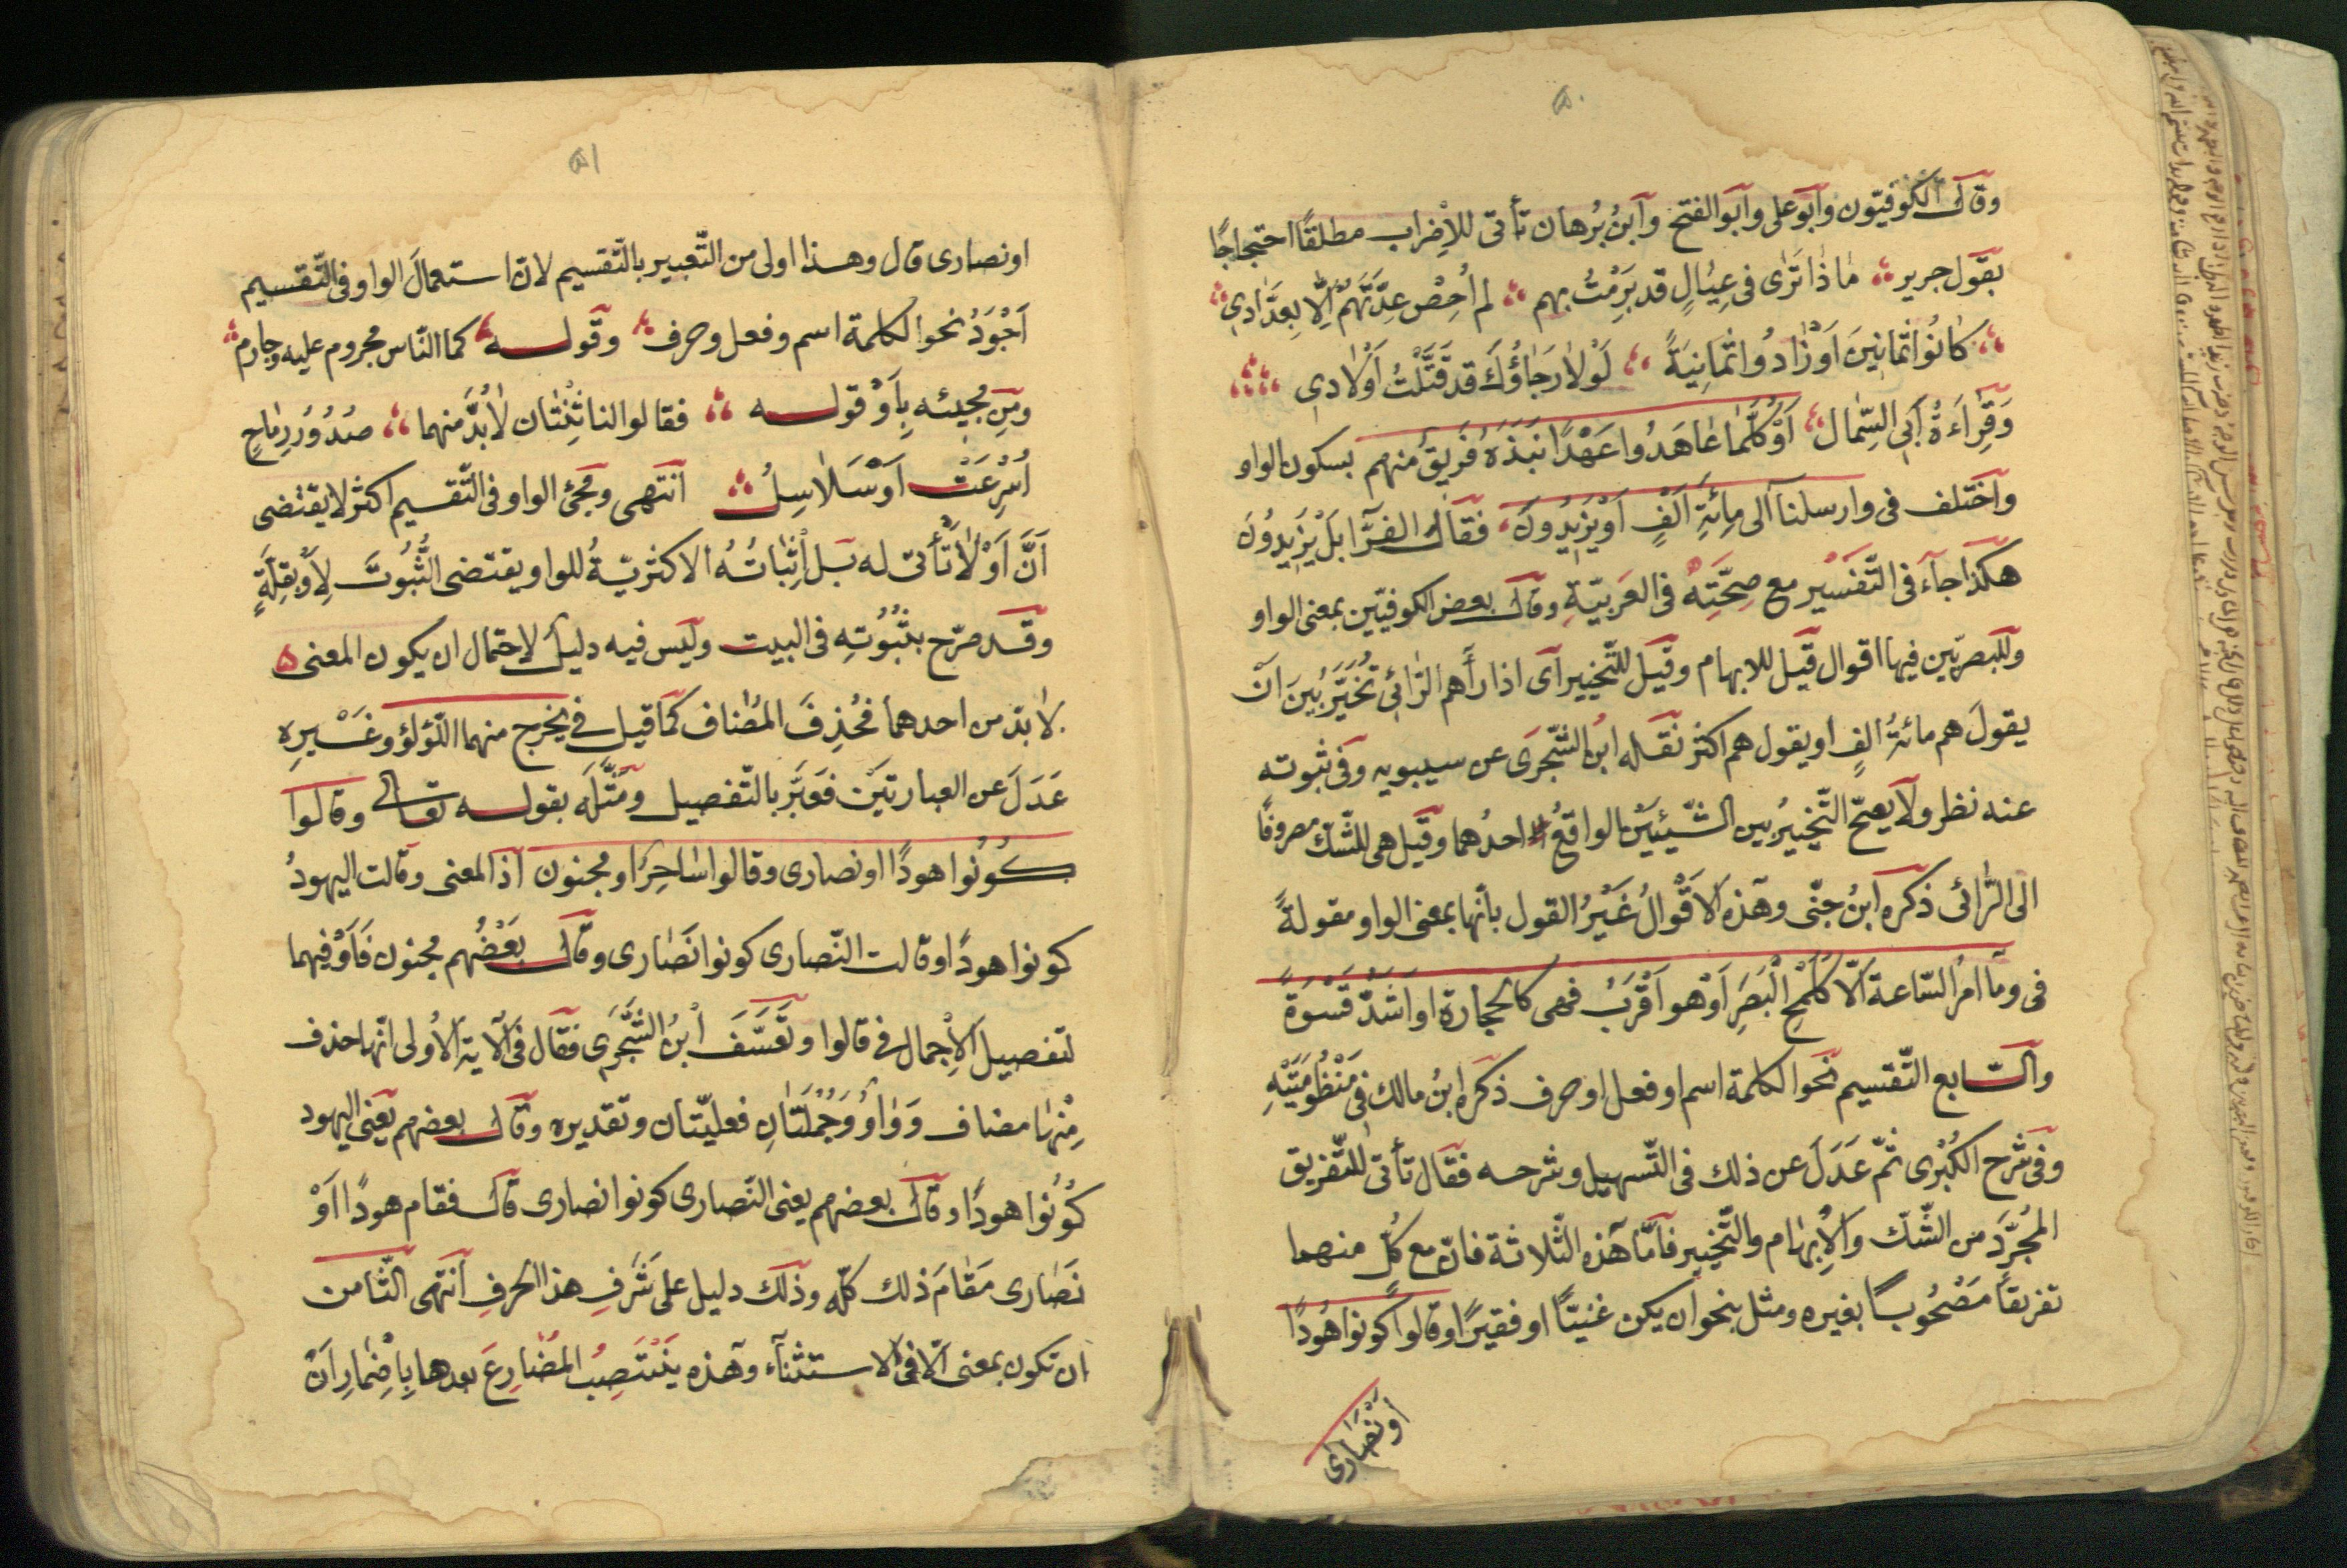 ٥٠
وقال الكوفيّون وأبو على وأبو الفتح وابنُ بُرهان تأتى للإضراب مطلقًا احتجاجًا
بقول جرير ماذا تَرٰى فى عِيٰالٍ قد بَرِمْتُ بهم لم أُحِصْ عِدَّتَهُمْ إلّا بِعَدّادِى
كٰانُوا ثمانِينَ اَوْ زٰادُوا ثمٰانِيَةً لَوْلٰا رَجٰاؤُكَ قد قَتَّلْتُ اَوْلٰادِى
وَقِرٰاءَةُ أبى السّمال اَوْ كُلَّمٰا عٰاهَدُوا عَهْدًا نَبَذَهُ فَرِيقٌ منهم بسكون الواو
واختلف فى وارسلناه الى مِائَةِ اَلْفٍ اَوْ يَزِيدُونَ فقال الفرّا بَلْ يَزِيدُونَ
هكذا جآءَ فى التّفسير مع صِحَّتِهِ فى العَرَبيّةِ وقال بعض الكوفيّين بمعنى الواو
وللبصريّين فيها اقوال قيل للابهام وقيل للتّخيير اى اذا رأهم الرّائى تُخَيَّرُ بَيْنَ اَنْ
يقولَ هم مائةُ الفٍ او يقول هم اكثر نقله ابن الشّجرى عن سيبويه وفى ثبوته
عنه نظر ولا يصحّ التّخييرُ بين الشّيئيَنْ الواقعُ احدُهما وقيل هى للشّكّ مصروفًا
الى الرّائى ذكره ابنُ جنّى وهذه الاَقْوالُ غَيْرُ القول بانّها بمعنى الواو مقولةً
فى وما امرُ السّاعة اَلّا كَلَمْحِ الْبَصَرِ اَوْ هو اَقْرَبُ فهى كالحجارة او اَشَدُّ قَسْوَةً
والسّابع التّقسيم نحو الكلمة اسم او فعل او حرف ذكره ابنُ مالك فى مَنْظُومَتِهِ
وفى شَرْحِ الكُبْرٰى ثمّ عَدَلَ عن ذلك فى التّسهيل وشرحه فقال تأتى للتّفريق
المُجَرَّدِ من الشّكّ والاِبهٰام والتّخيير فامّا هذه الثّلاثة فانّ مع كُلٍّ منهما
تفريقًا مَصْحُوبًا بغيره ومثل بنحو ان يكن غنيّاً او فقيرًا وقالوا كُونوا هُودًا
اَوْنَصٰارٰى
٥١
او نصارى قال وهذا اولى من التّعبير بالتّقسيم لانّ استعمالَ الواو فى التّقسيم
اَجْوَدُ نحو الكلمة اسم وفعل وحرف وقوله كما النّاس مجروم عليه وجارم
ومن مجيئه بِاَوْ قوله فقالوا لنا ثِنْتٰان لٰا بُدَّ منهما صُدُورُ رِمٰاحٍ
اُشْرِعَتْ اَوْ سَلٰاسِلُ انتهى ومجئ الواو فى التّقسيم اكثر لا يقتضى
اَنَّ اَوْ لٰا تأتى له بل اِثبٰاتُهُ الاكثريّةُ للواو يقتضى الثُّبُوتَ لِاَوْ بقِلّةٍ
وقد صرّح بِثُبُوتِهِ فى البيت وليس فيه دليلٌ لاحتمال ان يكون المعنى
لٰا بدّ من احدهما فحُذِفَ المُضٰاف كما قيل فى يخرج منهما اللّؤلؤ وغَيْرِهِ
عَدَلَ عن العبارتَيْن فَعَبَّرَ بالتّفصيل ومَثَّلَه بقوله تعالى وقالوا
كُونُوا هودًا او نصارى وقالوا سٰاحِرٌ او مجنون اذ المعنى وقالت اليهودُ
كونوا هودًا وقالت النّصارى كونوا نَصٰارى وقال بَعْضُهم مجنون فَاَوْ فيهما
لتفصيل الاِجمال فى قالوا وتَعَسَّفَ ابنُ الشّجَرِى فقال فى الآية الاُولى انّها حذف
مِنْهٰا مضاف وَوٰاوٌ وَجُمْلَتٰانِ فعليّتان وتقديره وقال بعضهم يعنى اليهود
كُونُوا هودًا وقال بعضهم يعنى النّصارى كونوا نصارى قال فقام هودًا اَوْ
نَصٰارى مَقٰامَ ذلك كلّه وذلك دليل على شَرَفِ هذا الحرفِ انتهى الثّامن
ان تكون بمعنى الّا فى الاستثناء وهذه يَنْتَصِبُ المضٰارِعَ بعدها بِاِضْمٰارِ اَنْ